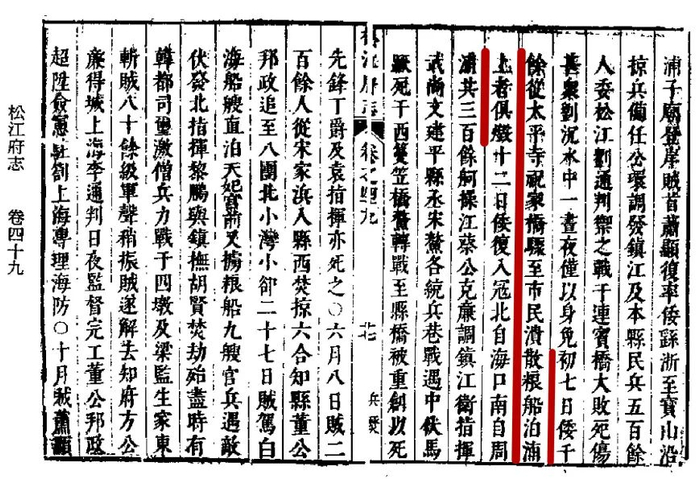 浦子廟登岸賊首蕭顯復率倭繇浙至寶山沿
掠兵備任公環調發鎮江及本縣民兵五百餘
人委松江劉通判禦之戰于連賓橋大敗死傷
甚衆劉沉水中一晝夜僅以身免初七日倭千
餘從太平寺祝家橋驟至市民潰散根船泊浦
上者俱燬十二日倭復入寇北自海口南自周
浦共三百餘舸操江蔡公克廉調鎮江衛指揮
武尚文建平縣丞宋鰲各統兵巷戰遇中伏馬
蹶死于西簑笠橋鰲轉戰至縣橋被重創以死
松江府志 卷之四九 廿七 兵燹
先鋒丁爵及袁指揮亦死之○六月八日賊二
百餘人從宋家浜入縣西焚掠六合知縣董公
邦政追至八團北小灣小卻二十七日賊駕白
海船艘直泊天妃宮前又擄根船九艘官兵遇敵
伏發北指揮黎鵬與鎮撫胡賢焚劫殆盡時有
韓都司璽激僧兵力戰于四墩及梁監生家東
斬賊八十餘級軍聲稍振賊遂解去知府方公
廉得城上海李通判日夜監督完工董公邦政
超陞僉憲駐劄上海專理海防○十月賊蕭顯
松江府志 卷四十九